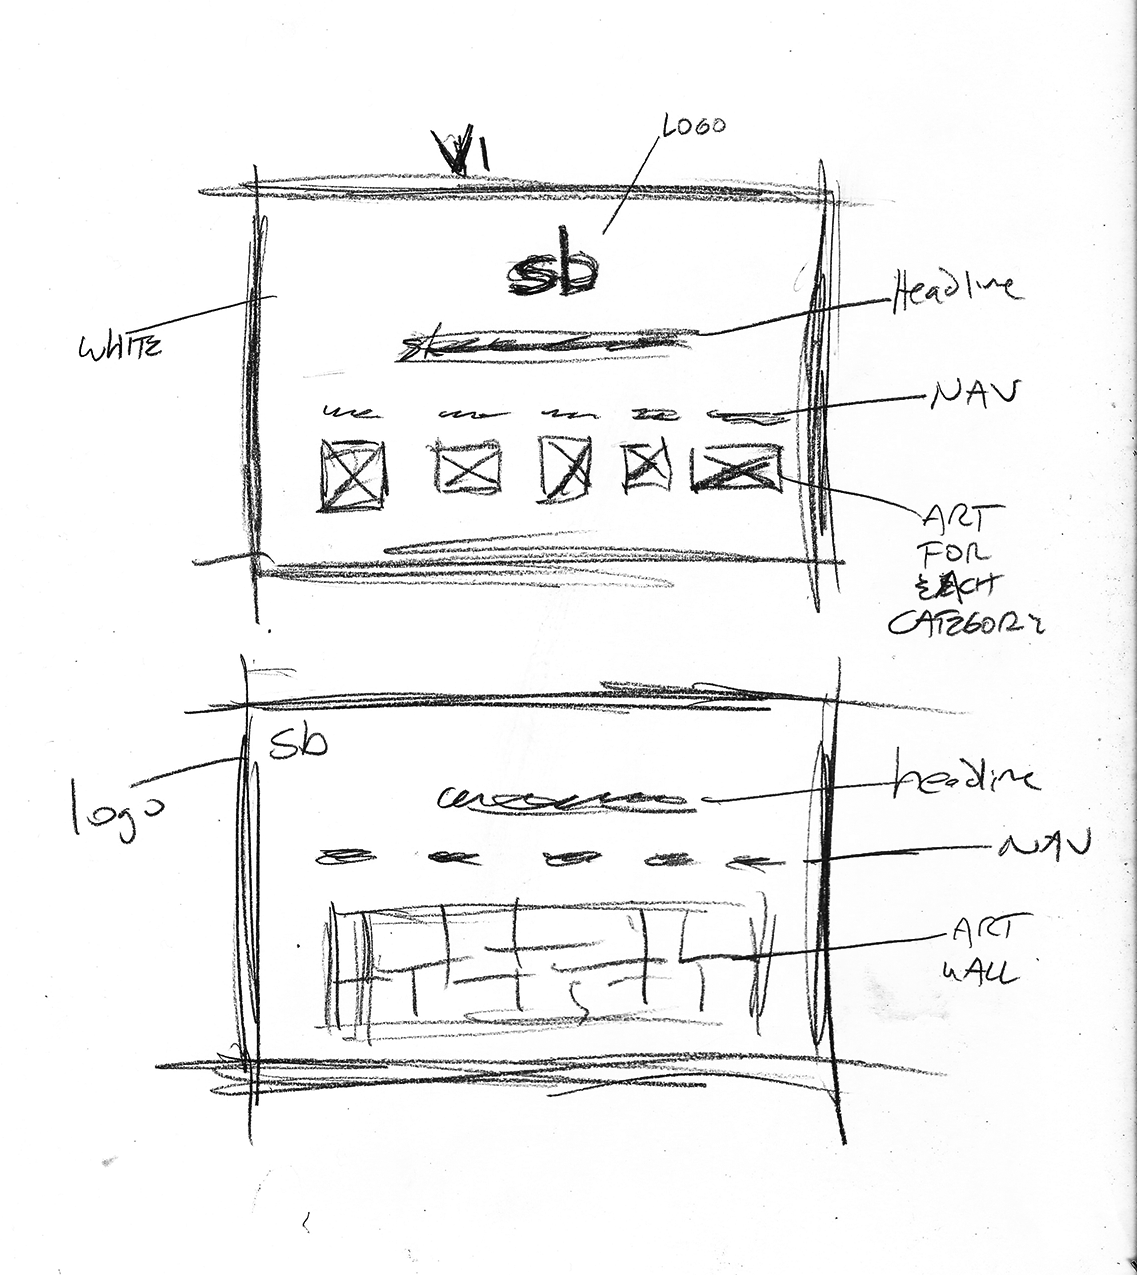 V1
LOGO
sb
Headline
WHITE
NAV
ART
FOR
EACH
CATEGORY
sb
logo
headline
NAV
ART
WALL